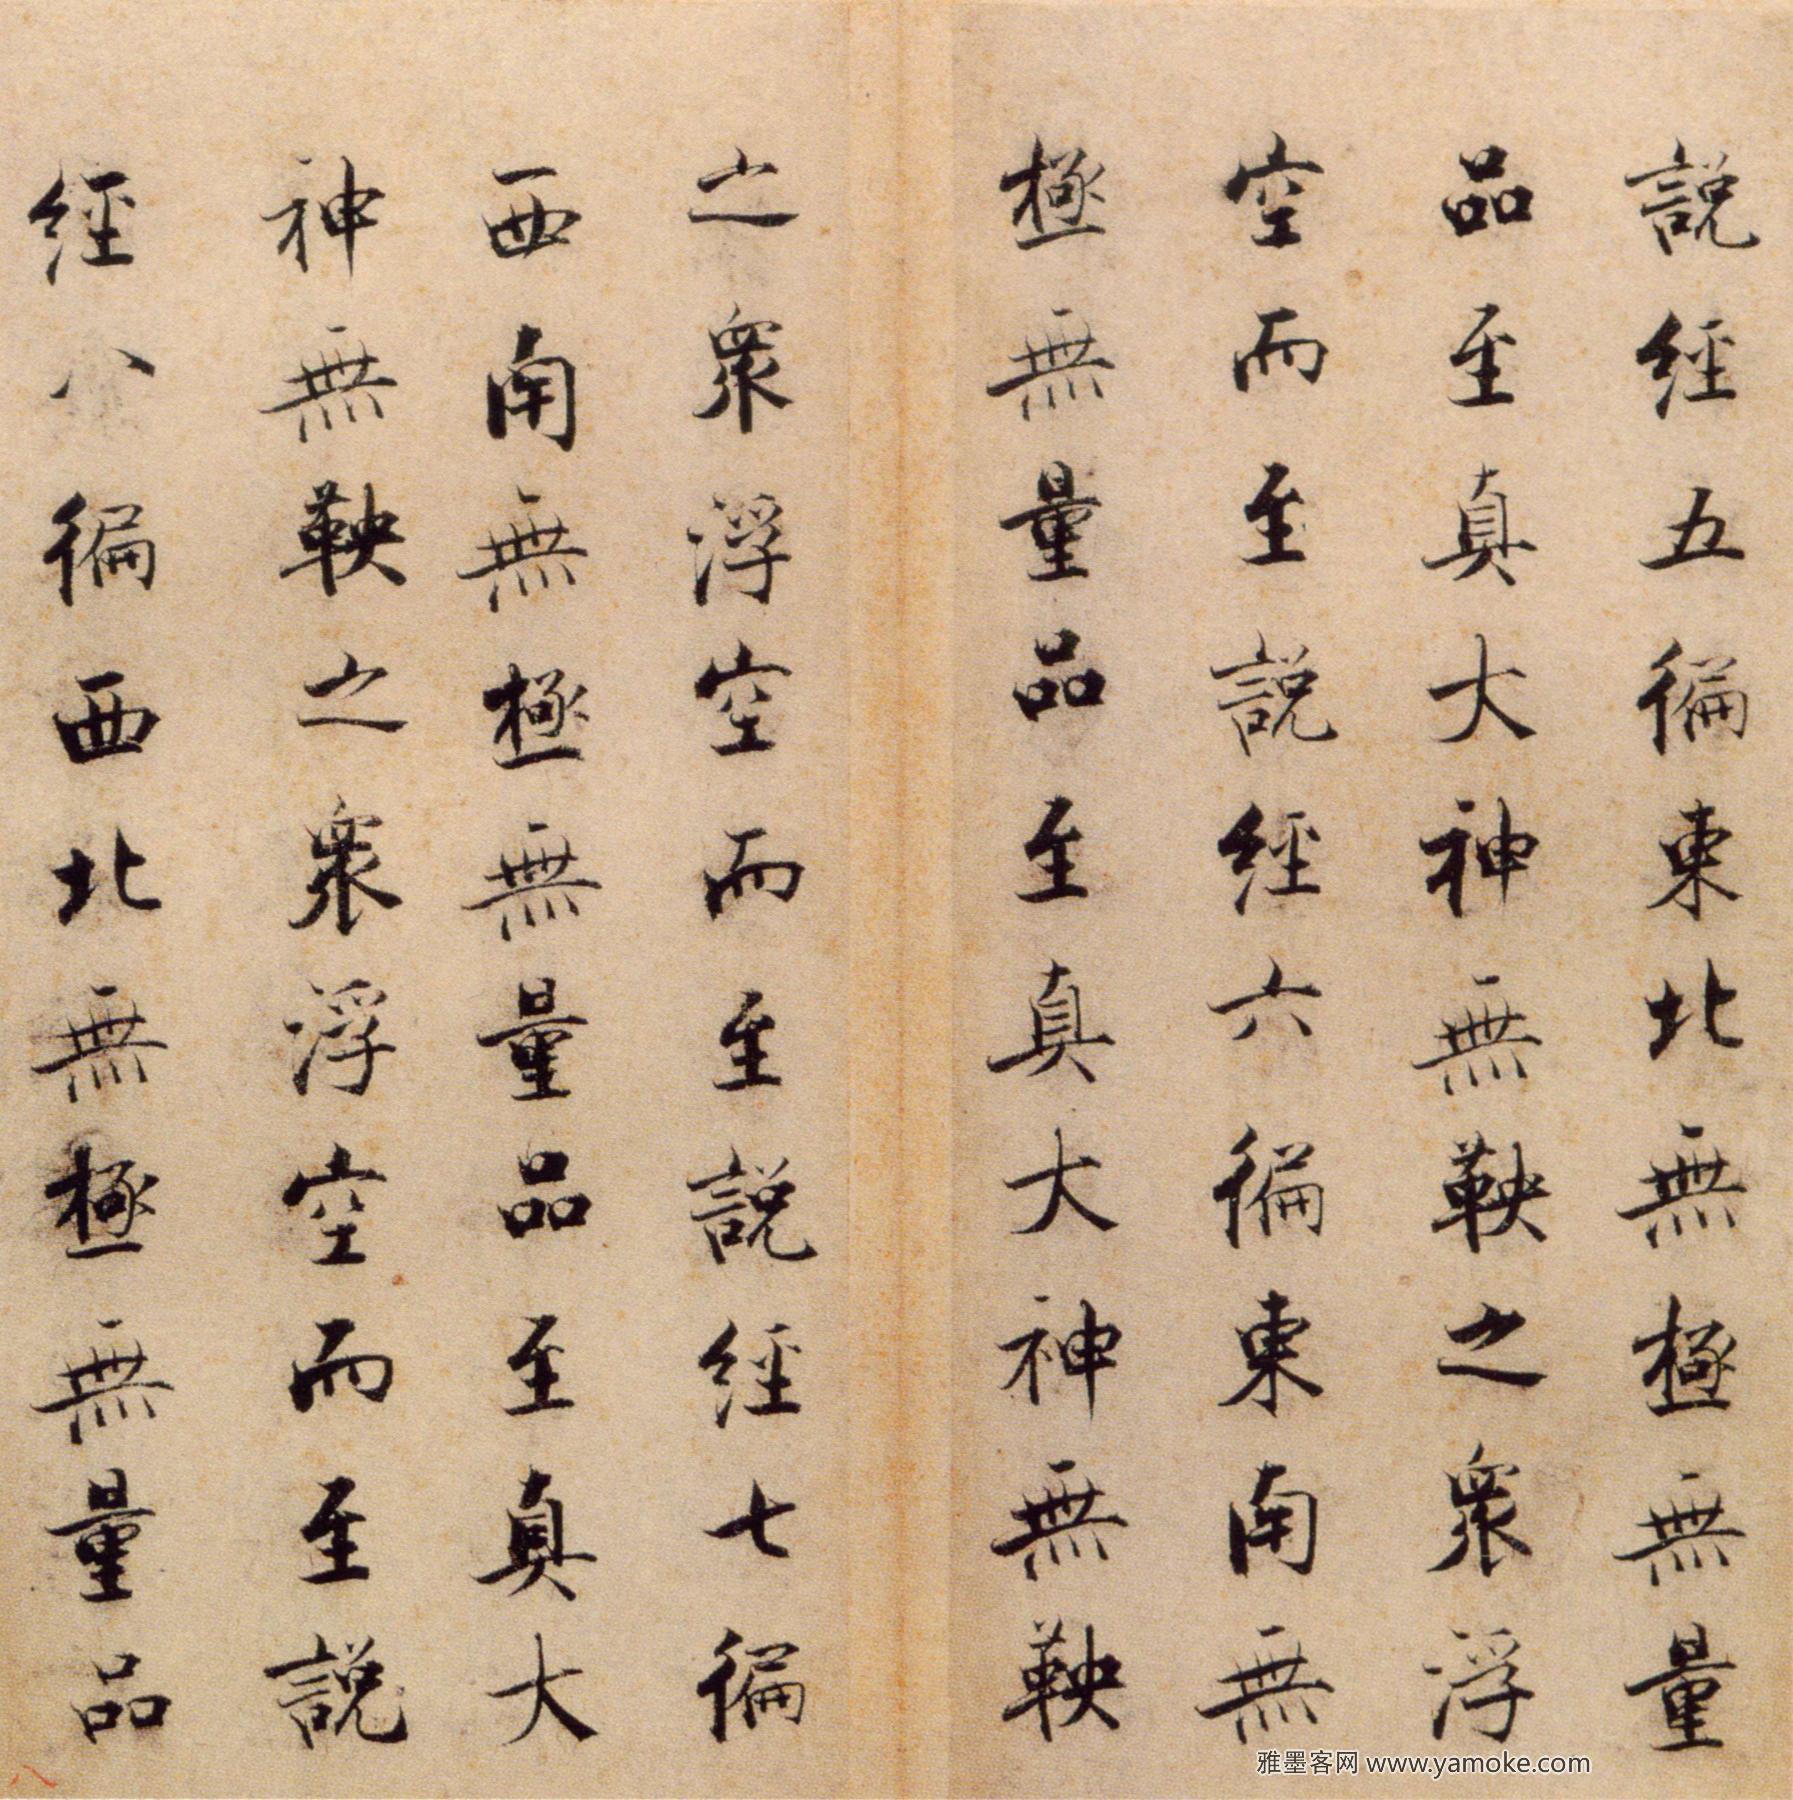 說經五徧東北無極無量
品至真大神無鞅之衆浮
空而至說經六徧東南無
極無量品至真大神無鞅
之衆浮空而至說經七徧
西南無極無量品至真大
神無鞅之衆浮空而至說
經八徧西北無極無量品
八
雅墨客网 www.yamoke.com